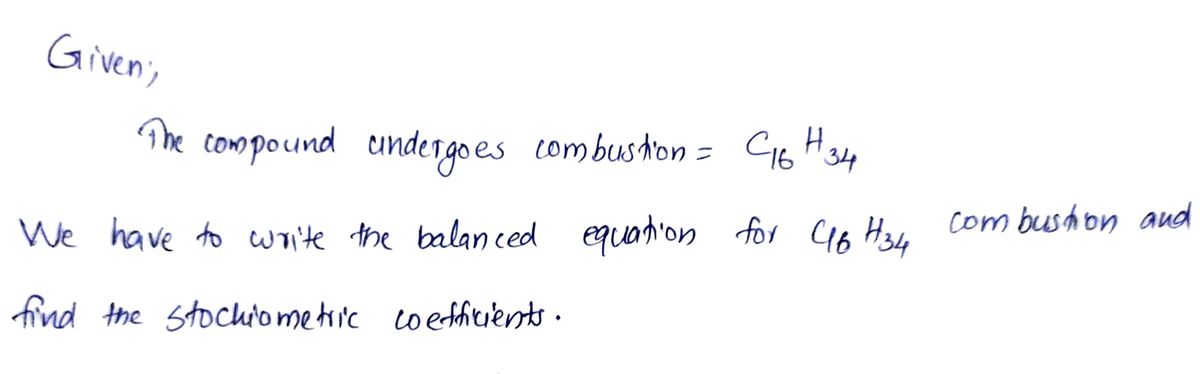 Given;,
The compound undergoes combustion = C₁₆H₃₄
We have to write the balanced equation for C₁₆H₃₄ combustion and
find the stochiometric coefficients.